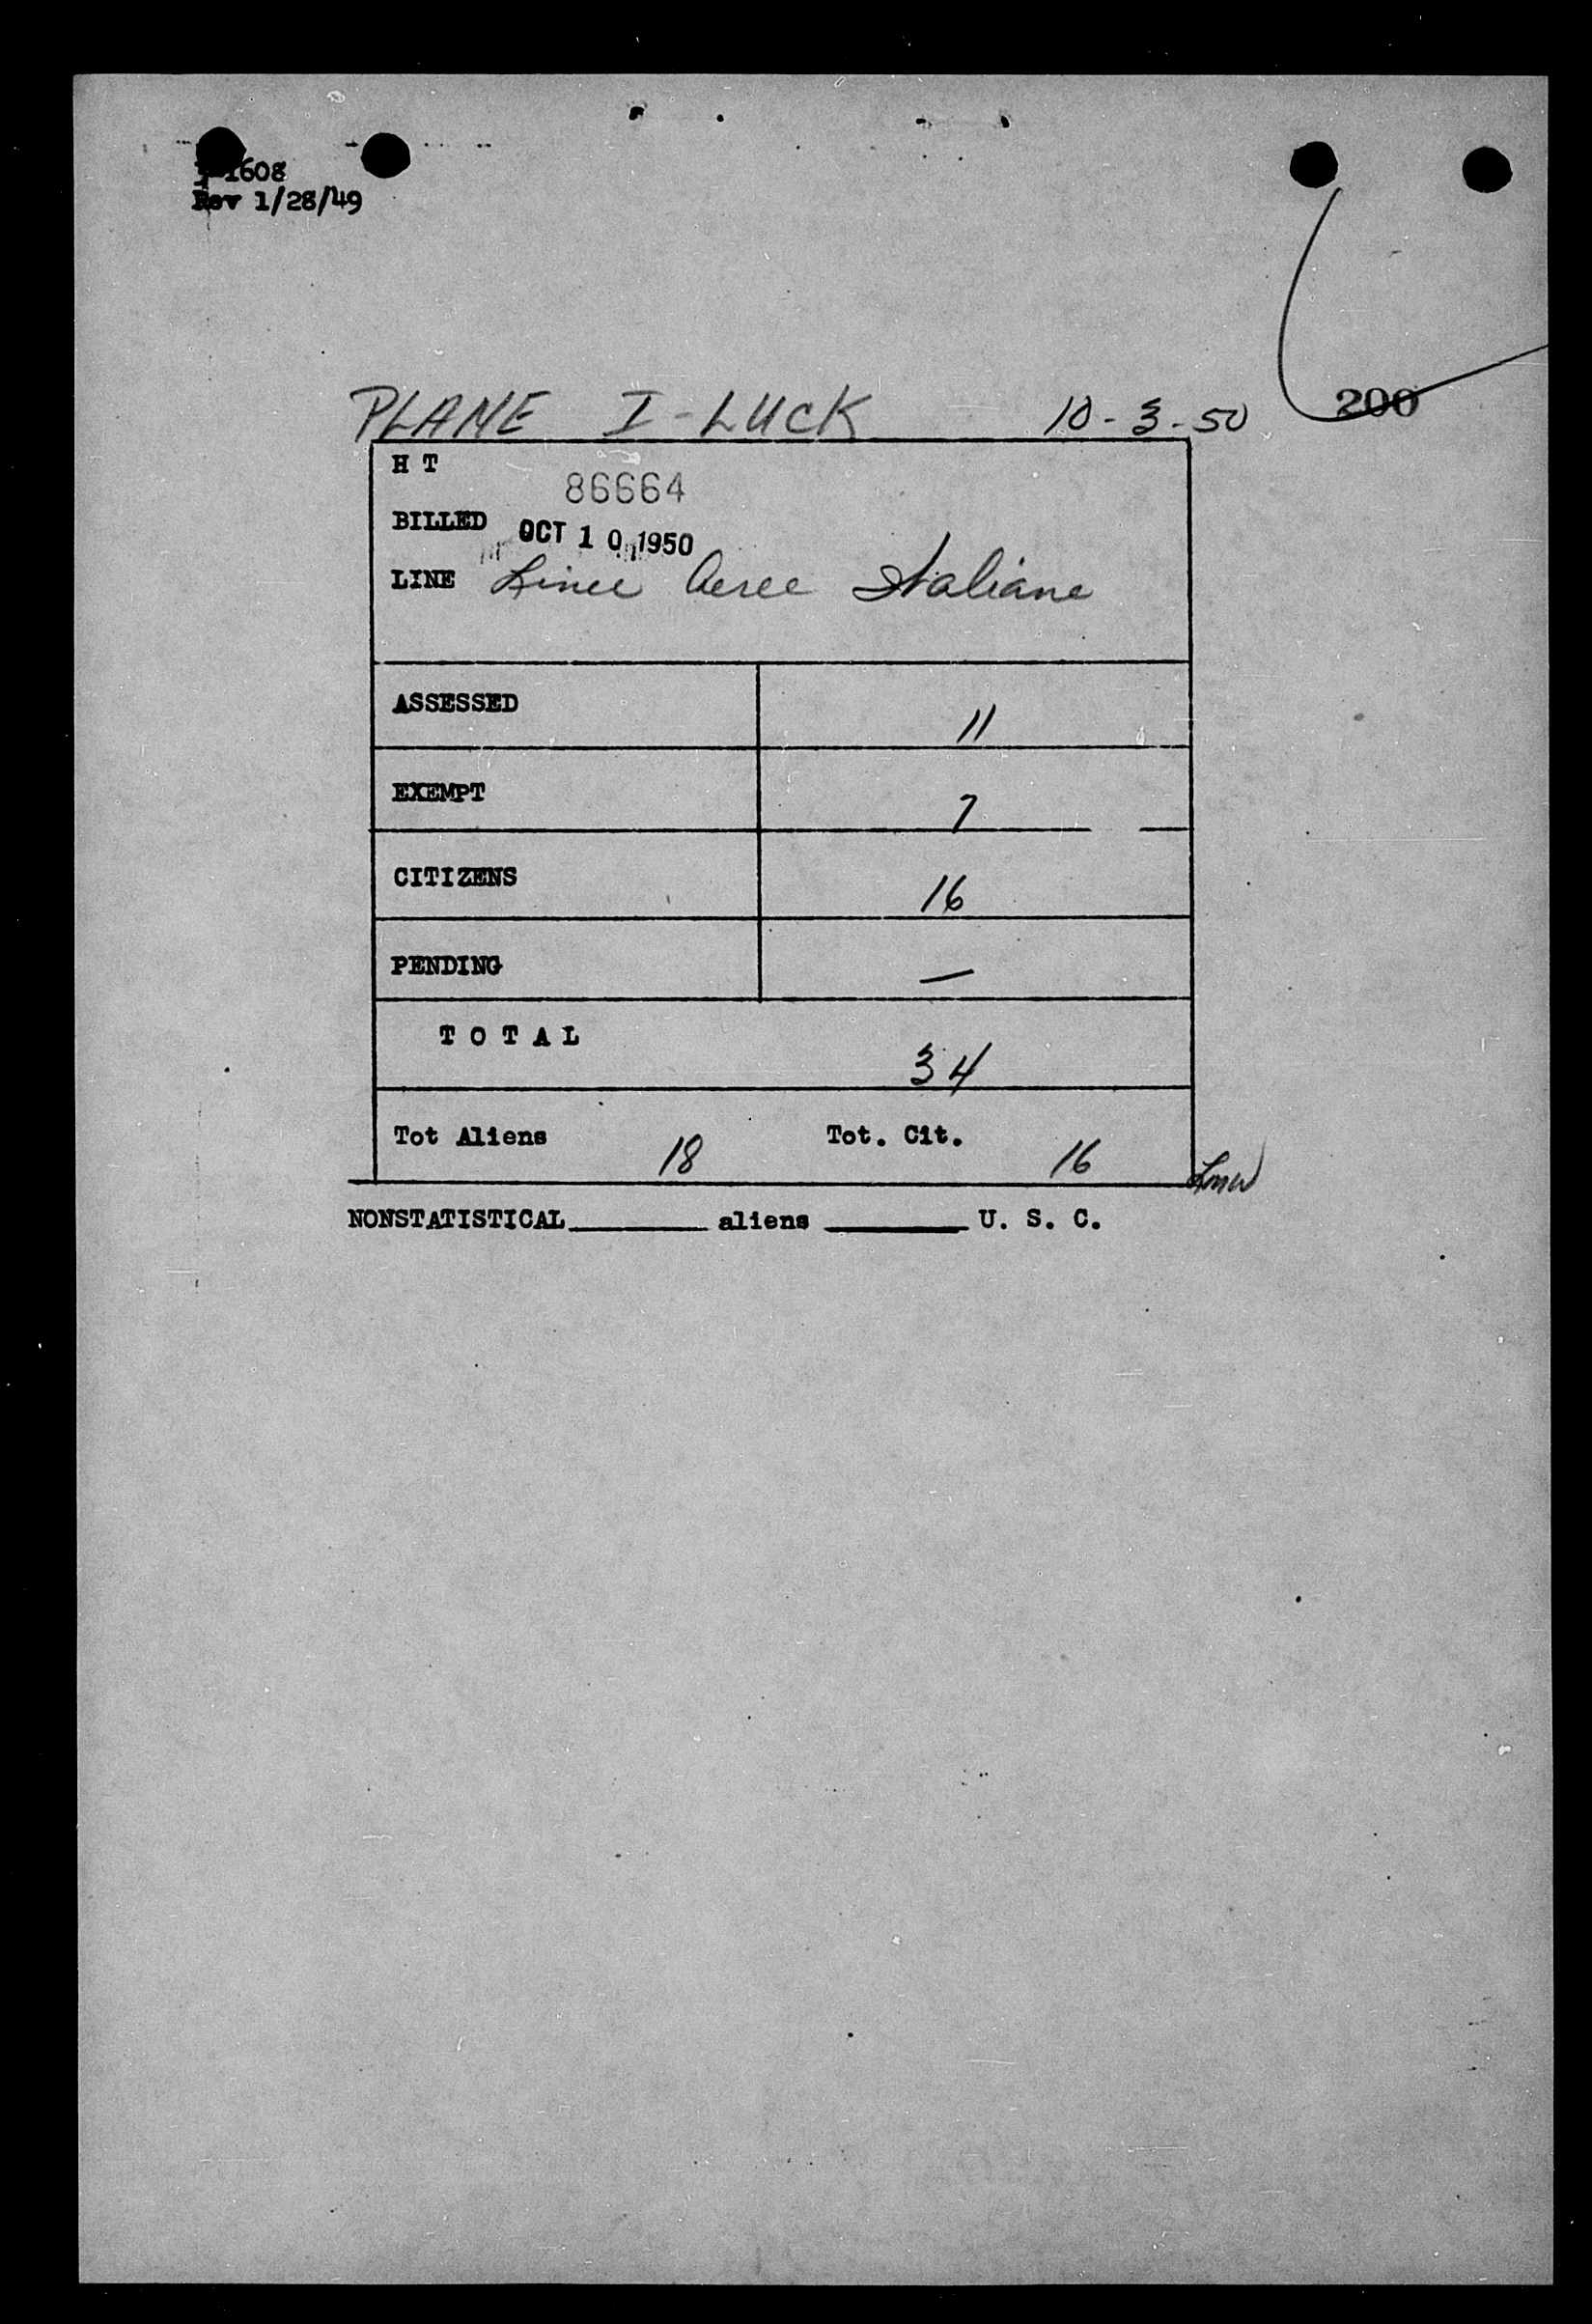 1608
Rev 1/28/49
200
PLANE I-LUCK 10-3-50
H T
86664
BILLED OCT 10 1950
LINE Linee Aeree Italiane
ASSESSED 11
EXEMPT 7
CITIZENS 16
PENDING —
TOTAL 34
Tot Aliens 18 Tot. Cit. 16
NONSTATISTICAL________ aliens ________ U. S. C.